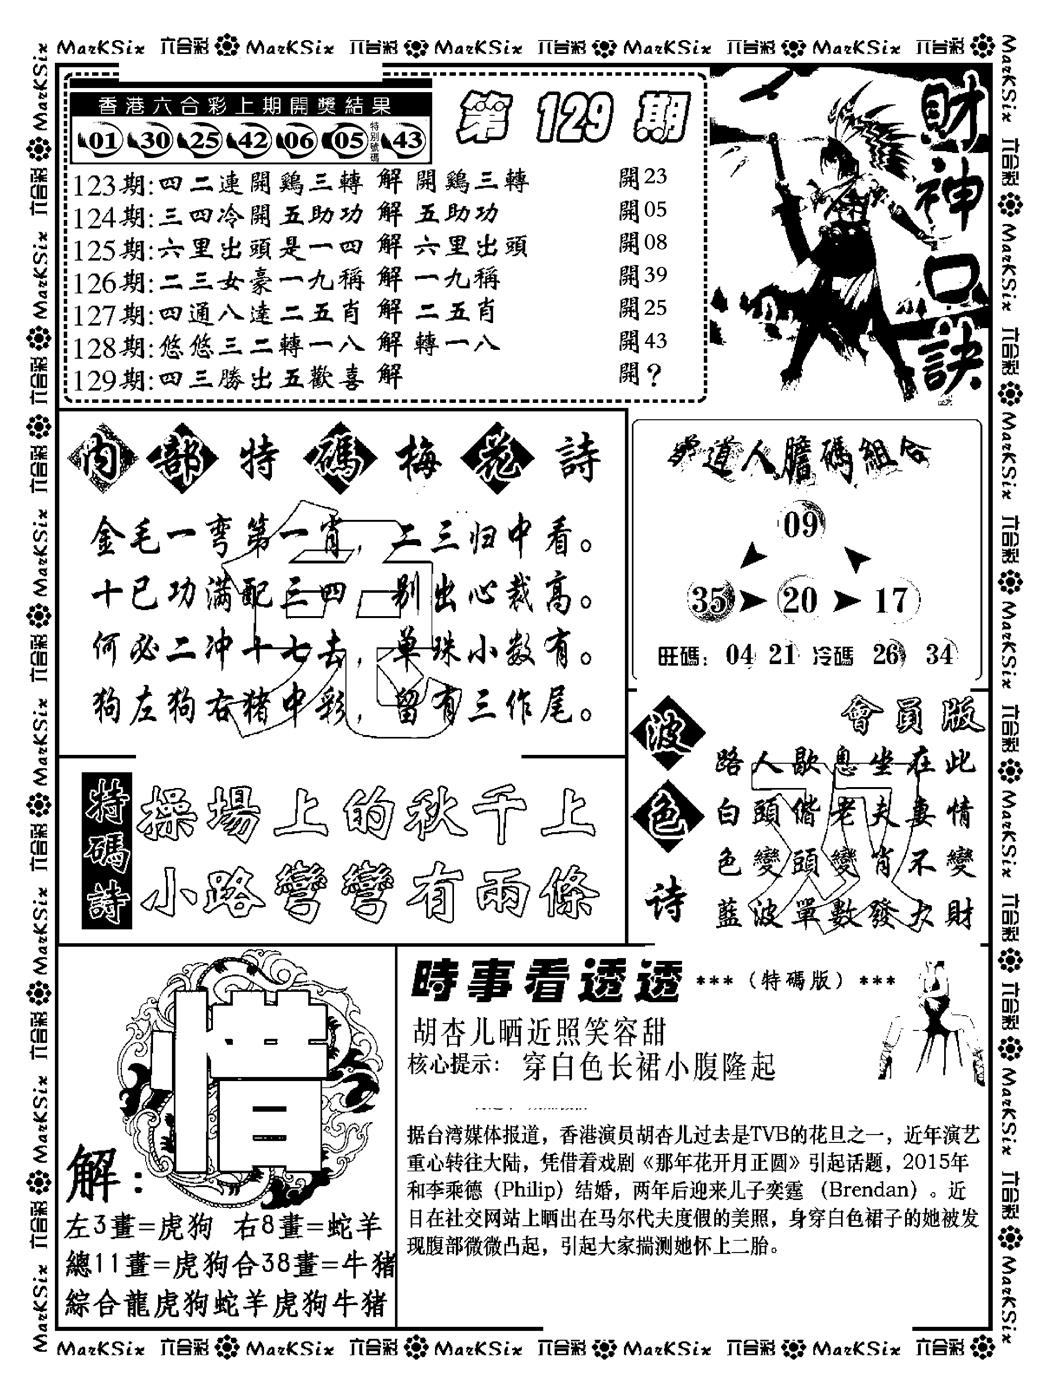 MarKSix 六合彩 MarKSix 六合彩 MarKSix 六合彩 MarKSix 六合彩 MarKSix 六合彩
香港六合彩上期開獎結果
01 30 25 42 06 05 特別號碼 43
第 129 期
123期:四二連開鷄三轉 解 開鷄三轉 開23
124期:三四冷開五助功 解 五助功 開05
125期:六里出頭是一四 解 六里出頭 開08
126期:二三女豪一九稱 解 一九稱 開39
127期:四通八達二五肖 解 二五肖 開25
128期:悠悠三二轉一八 解 轉一八 開43
129期:四三勝出五歡喜 解 開?
財神口訣
内部特碼梅花詩
金毛一弯第一肖，二三归中看。
十已功满配三四 别出心裁高。
何必二冲十七去，单珠小数有。
狗左狗右猪中彩，留有三作尾。
道人膽碼組合
09
35 20 17
旺碼: 04 21 冷碼 26 34
波色诗
會員版
路人歇息坐在此
白頭偕老夫妻情
色變頭變肖不變
藍波單數發大財
特碼詩
操場上的秋千上
小路彎彎有兩條
惜
解：
左3畫=虎狗 右8畫=蛇羊
總11畫=虎狗合38畫=牛猪
綜合龍虎狗蛇羊虎狗牛猪
時事看透透 ***（特碼版）***
胡杏儿晒近照笑容甜
核心提示: 穿白色长裙小腹隆起
据台湾媒体报道，香港演员胡杏儿过去是TVB的花旦之一，近年演艺
重心转往大陆，凭借着戏剧《那年花开月正圆》引起话题，2015年
和李乘德（Philip）结婚，两年后迎来儿子奕霆 （Brendan）。近
日在社交网站上晒出在马尔代夫度假的美照，身穿白色裙子的她被发
现腹部微微凸起，引起大家揣测她怀上二胎。
MarKSix 六合彩 MarKSix 六合彩 MarKSix 六合彩 MarKSix 六合彩 MarKSix 六合彩